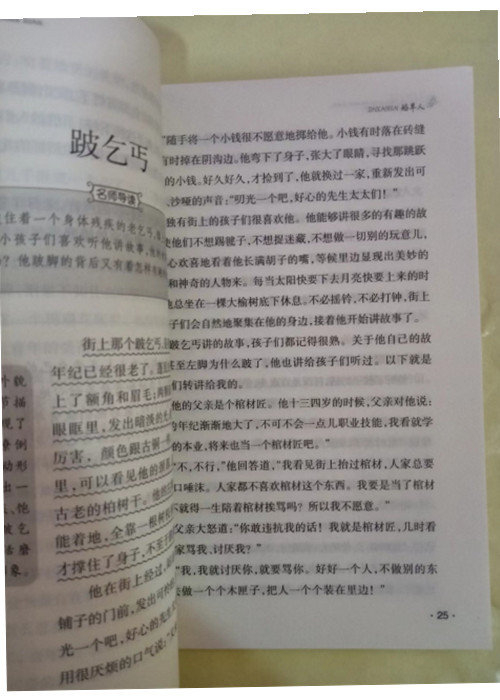 跛乞丐
名师导读
住着一个身体残疾的老乞丐
小孩子们喜欢听他讲故事
？他跛脚的背后又有着怎样
街上那个跛乞丐
年纪已经很老了。
上了额角和眉毛；两
眼眶里，发出暗淡的
厉害，颜色跟古铜一
里，可以看见他的
古老的柏树干。他的
能着地，全靠一根树
才撑住了身子，不至
他在街上经过，
铺子的门前，发出可
光一个吧，好心的先生
用很厌烦的口气说：“
DAOCAOREN 稻草人
随手将一个小钱很不愿意地掷给他。小钱有时落在砖缝
时掉在阴沟边。他弯下了身子，张大了眼睛，寻找那跳跃
的小钱。好久好久，才捡到了，他就换过一家，重新发出可
、沙哑的声音：“叨光一个吧，好心的先生太太们！”
独有街上的孩子们很喜欢他。他能够讲很多的有趣的故
使他们不想踢毽子，不想捉迷藏，不想做一切别的玩意儿，
心欢喜地看着他长满胡子的嘴，等候里边显现出美妙的
和神奇的人物来。每当太阳快要下去月亮快要上来的时
他总坐在一棵大榆树底下休息。不必摇铃，不必打钟，街上
子们会自然地聚集在他的身边，接着他开始讲故事了。
跛乞丐讲的故事，孩子们都记得很熟。关于他自己的故
至左脚为什么跛了，他也讲给孩子们听过。以下就是
们转讲给我的。
他的父亲是个棺材匠。他十三四岁的时候，父亲对他说：
的年纪渐渐地大了，不可不会一点儿职业技能，我看就学
的本业，将来也当一个棺材匠吧。”
“不，不行，”他回答道，“我看见街上抬过棺材，人家总要
口唾沫。人家都不喜欢棺材这个东西。我要是当了棺材
不就得一生陪着棺材挨骂吗？所以我不愿意。”
父亲大怒道：“你敢违抗我的话！我就是棺材匠，几时看
家骂我、讨厌我？”
“我，我就讨厌你，就要骂你。好好一个人，不做别的东
做一个个木匣子，把人一个个装在里边！”
·25·